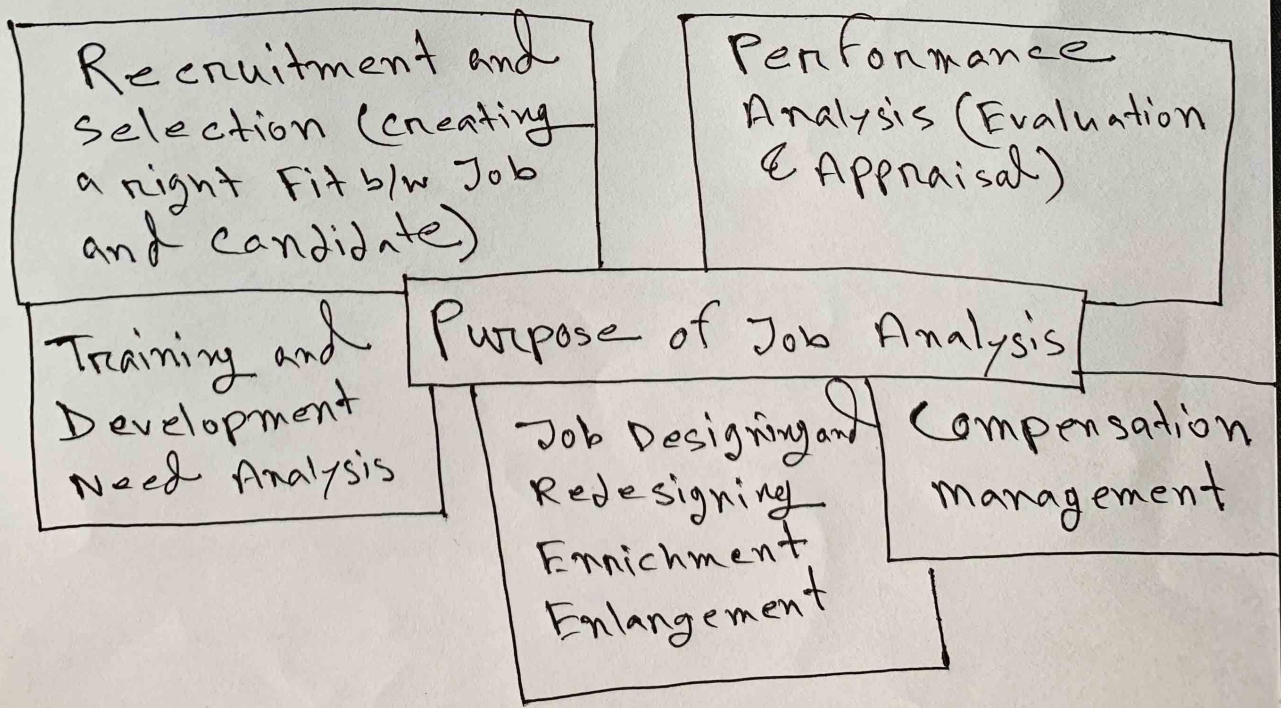 Recruitment and
selection (creating
a right Fit b/w Job
and candidate)
Performance
Analysis (Evaluation
& Appraisal)
Purpose of Job Analysis
Training and
Development
Need Analysis
Job Designing and
Redesigning
Enrichment
Enlargement
Compensation
management